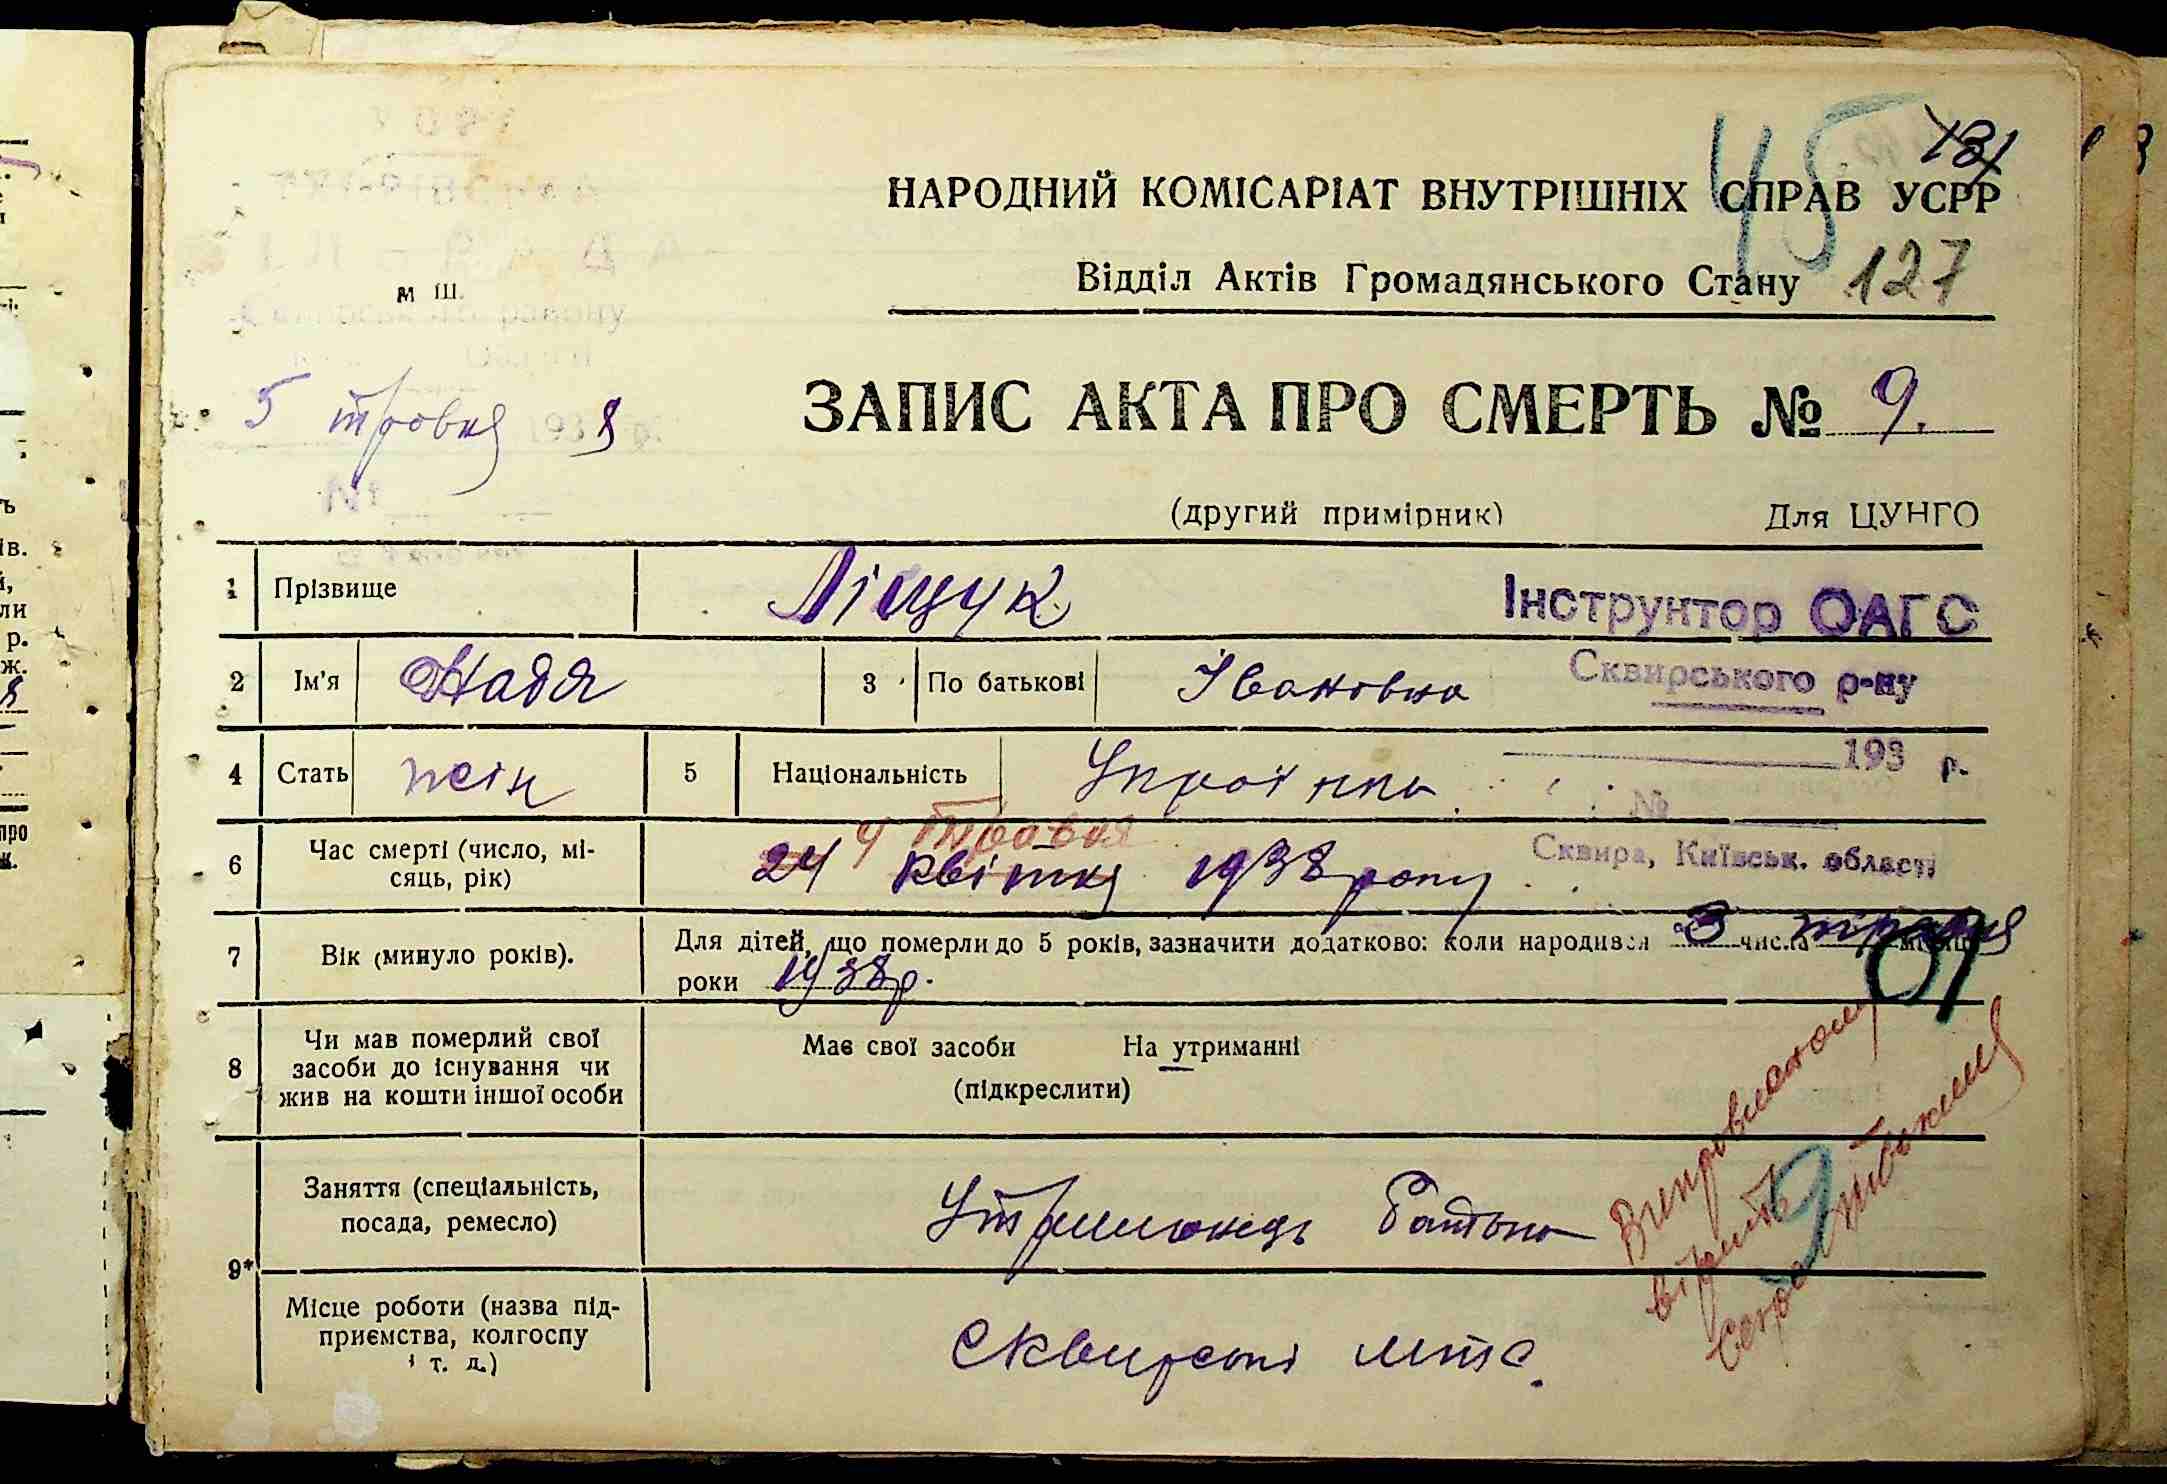 45
131
НАРОДНИЙ КОМІСАРІАТ ВНУТРІШНІХ СПРАВ УСРР
Відділ Актів Громадянського Стану 127
м Ш.
5 травня 1938 р.
ЗАПИС АКТА ПРО СМЕРТЬ № 9.
(другий примірник) Для ЦУНГО
1 Прізвище Ліщук
Інструктор ОАГС
2 Ім'я Надя 3 По батькові Івановна
Сквирського р-ну
4 Стать жін 5 Національність Українка
193 р.
№
Сквира, Київськ. області
4 травня
6 Час смерті (число, мі-
сяць, рік) 24 квітня 1938 року
7 Вік (минуло років). Для дітей, що померли до 5 років, зазначити додатково: коли народився 3 числа травня місяця
роки 1938 р.
01
8 Чи мав померлий свої
засоби до існування чи
жив на кошти іншої особи
Має свої засоби На утриманні
(підкреслити)
9* Заняття (спеціальність,
посада, ремесло) Утриманець батька
Місце роботи (назва під-
приємства, колгоспу
і т. д.) Сквирські мтс.
Виправленому
вірить